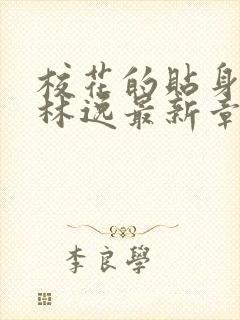 校花的貼身
林逸最新章
李良學